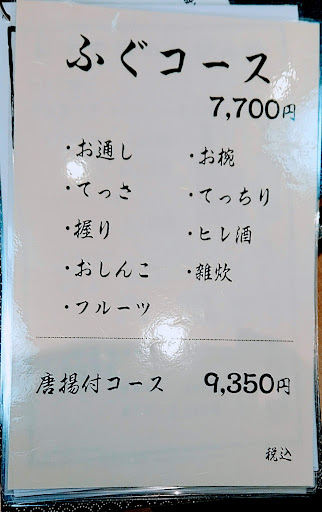 ふぐコース
7,700円
・お通し
・てっさ
・握り
・おしんこ
・フルーツ
・お椀
・てっちり
・ヒレ酒
・雑炊
唐揚付コース 9,350円
税込